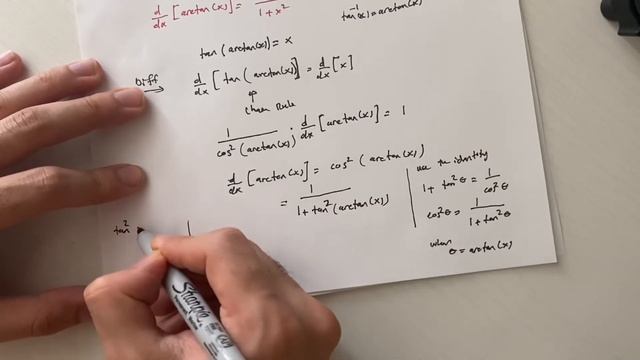 d/dx [arctan(x)] = 1/(1+x²)
tan⁻¹(x) = arctan(x)
tan(arctan(x)) = x
Diff ⟹ d/dx [tan(arctan(x))] = d/dx [x]
Chain Rule
1/cos²(arctan(x)) · d/dx [arctan(x)] = 1
d/dx [arctan(x)] = cos²(arctan(x))
= 1/(1+tan²(arctan(x)))
use the identity
1 + tan²θ = 1/cos²θ
cos²θ = 1/(1+tan²θ)
when
θ = arctan(x)
tan²
Sharpie